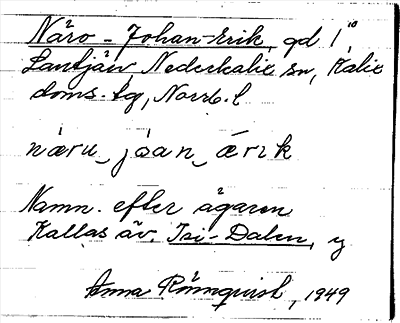 Näro-Johan-Erik, gd 1¹⁰
Lantjärv, Nederkalix sn, Kalix
doms. tg, Norrb. l
näru_jåan_ärik
Namn. efter ägaren
Kallas äv. Isi-Dalen, y
Anna Rönnqvist, 1949